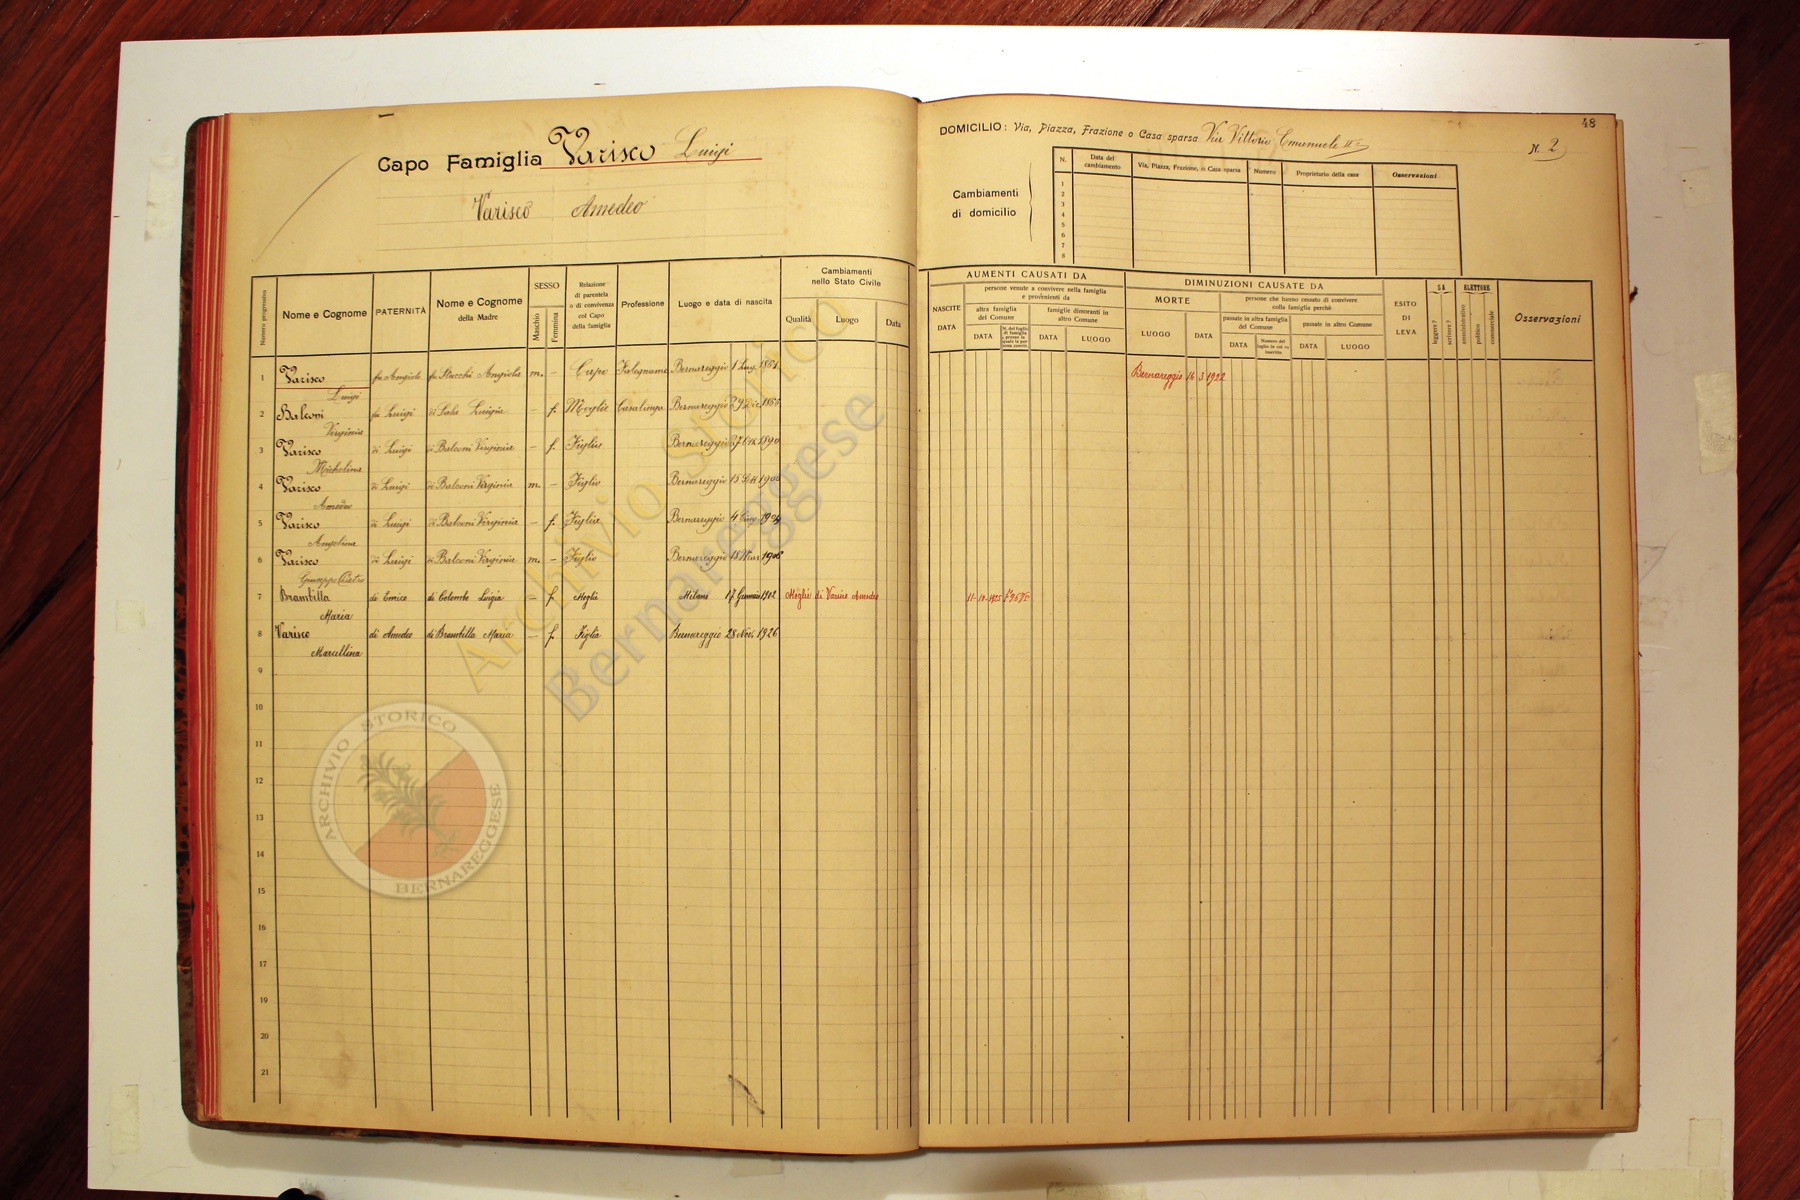 48
Capo Famiglia Varisco Luigi
Varisco Amedeo
DOMICILIO: Via, Piazza, Frazione o Casa sparsa Via Vittorio Emanuele II N. 2
Cambiamenti di domicilio
N. Data del cambiamento Via, Piazza, Frazione, o Casa sparsa Numero Proprietario della casa Osservazioni
1
2
3
4
5
6
7
8
Numero progressivo
Nome e Cognome
PATERNITÀ
Nome e Cognome della Madre
SESSO
Maschio
Femmina
Relazione di parentela o di convivenza col Capo della famiglia
Professione
Luogo e data di nascita
Cambiamenti nello Stato Civile
Qualità Luogo Data
NASCITE DATA
AUMENTI CAUSATI DA
persone venute a convivere nella famiglia e provenienti da
altra famiglia del Comune
DATA
famiglie dimoranti in altro Comune
DATA LUOGO
DIMINUZIONI CAUSATE DA
MORTE
LUOGO DATA
persone che hanno cessato di convivere colla famiglia perchè
passate in altra famiglia del Comune
DATA
passate in altro Comune
DATA LUOGO
ESITO DI LEVA
SA
leggere?
scrivere?
ELETTORE
amministrativo
politico
commerciale
Osservazioni
1 Varisco Luigi fu Angiolo fu Stucchi Angiola m. – Capo Falegname Bernareggio 1 1851 Bernareggio 14 3 1922
2 Balconi Virginia fu Luigi di Sala Luigia – f. Moglie Casalinga Bernareggio 29 Dic.
3 Varisco Michelina di Luigi di Balconi Virginia – f. Figlia Bernareggio 27 1890
4 Varisco Amedeo di Luigi di Balconi Virginia m. – Figlio Bernareggio 15
5 Varisco Angelina di Luigi di Balconi Virginia – f. Figlia Bernareggio 4
6 Varisco Giuseppe Pietro di Luigi di Balconi Virginia m. – Figlio Bernareggio 18 Mar.
7 Brambilla Maria di Enrico di Colombo Luigia – f. Moglie Milano 17 Gennaio 1902 Moglie di Varisco Amedeo 11-10-1925
8 Varisco Marcellina di Amedeo di Brambilla Maria – f. Figlia Bernareggio 28 Nov. 1926
9
10
11
12
13
14
15
16
17
18
19
20
21
Archivio Storico
Bernareggese
ARCHIVIO STORICO
BERNAREGGESE